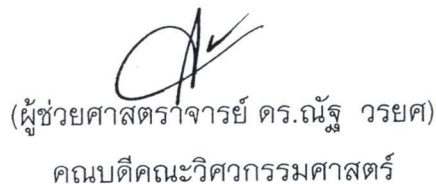 (ผู้ช่วยศาสตราจารย์ ดร.ณัฐ วรยศ)
คณบดีคณะวิศวกรรมศาสตร์